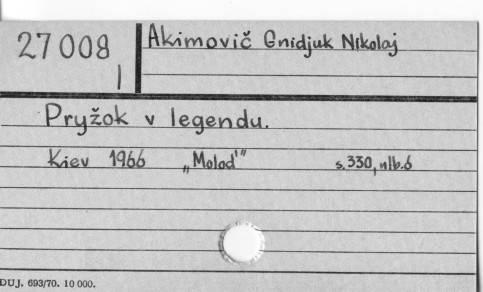 27 008
Akimovič Gnidjuk Nikolaj
1
Pryžok v legendu.
Kiev 1966 „Molod'" s.330, nlb.6
DUJ. 693/70. 10 000.